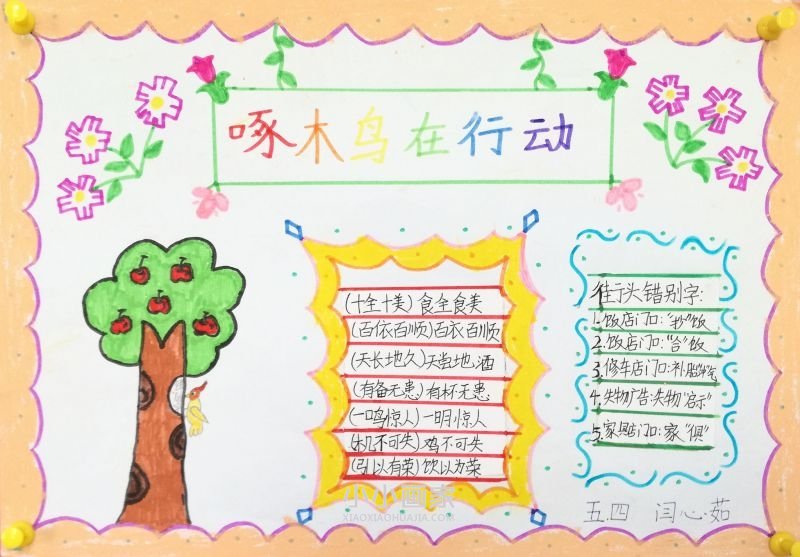 啄木鸟在行动
(十全十美) 食全食美
(百依百顺) 百衣百顺
(天长地久) 天尝地酒
(有备无患) 有杯无患
(一鸣惊人) 一明惊人
(机不可失) 鸡不可失
(引以为荣) 饮以为荣
街头错别字:
1.饭店门口:"抄"饭
2.饭店门口:"合"饭
3.修车店门口:补胎
4.失物广告:失物"启示"
5.家具店门口:家"俱"
五.四 闫心茹
小小画家
XIAOXIAOHUAJIA.COM